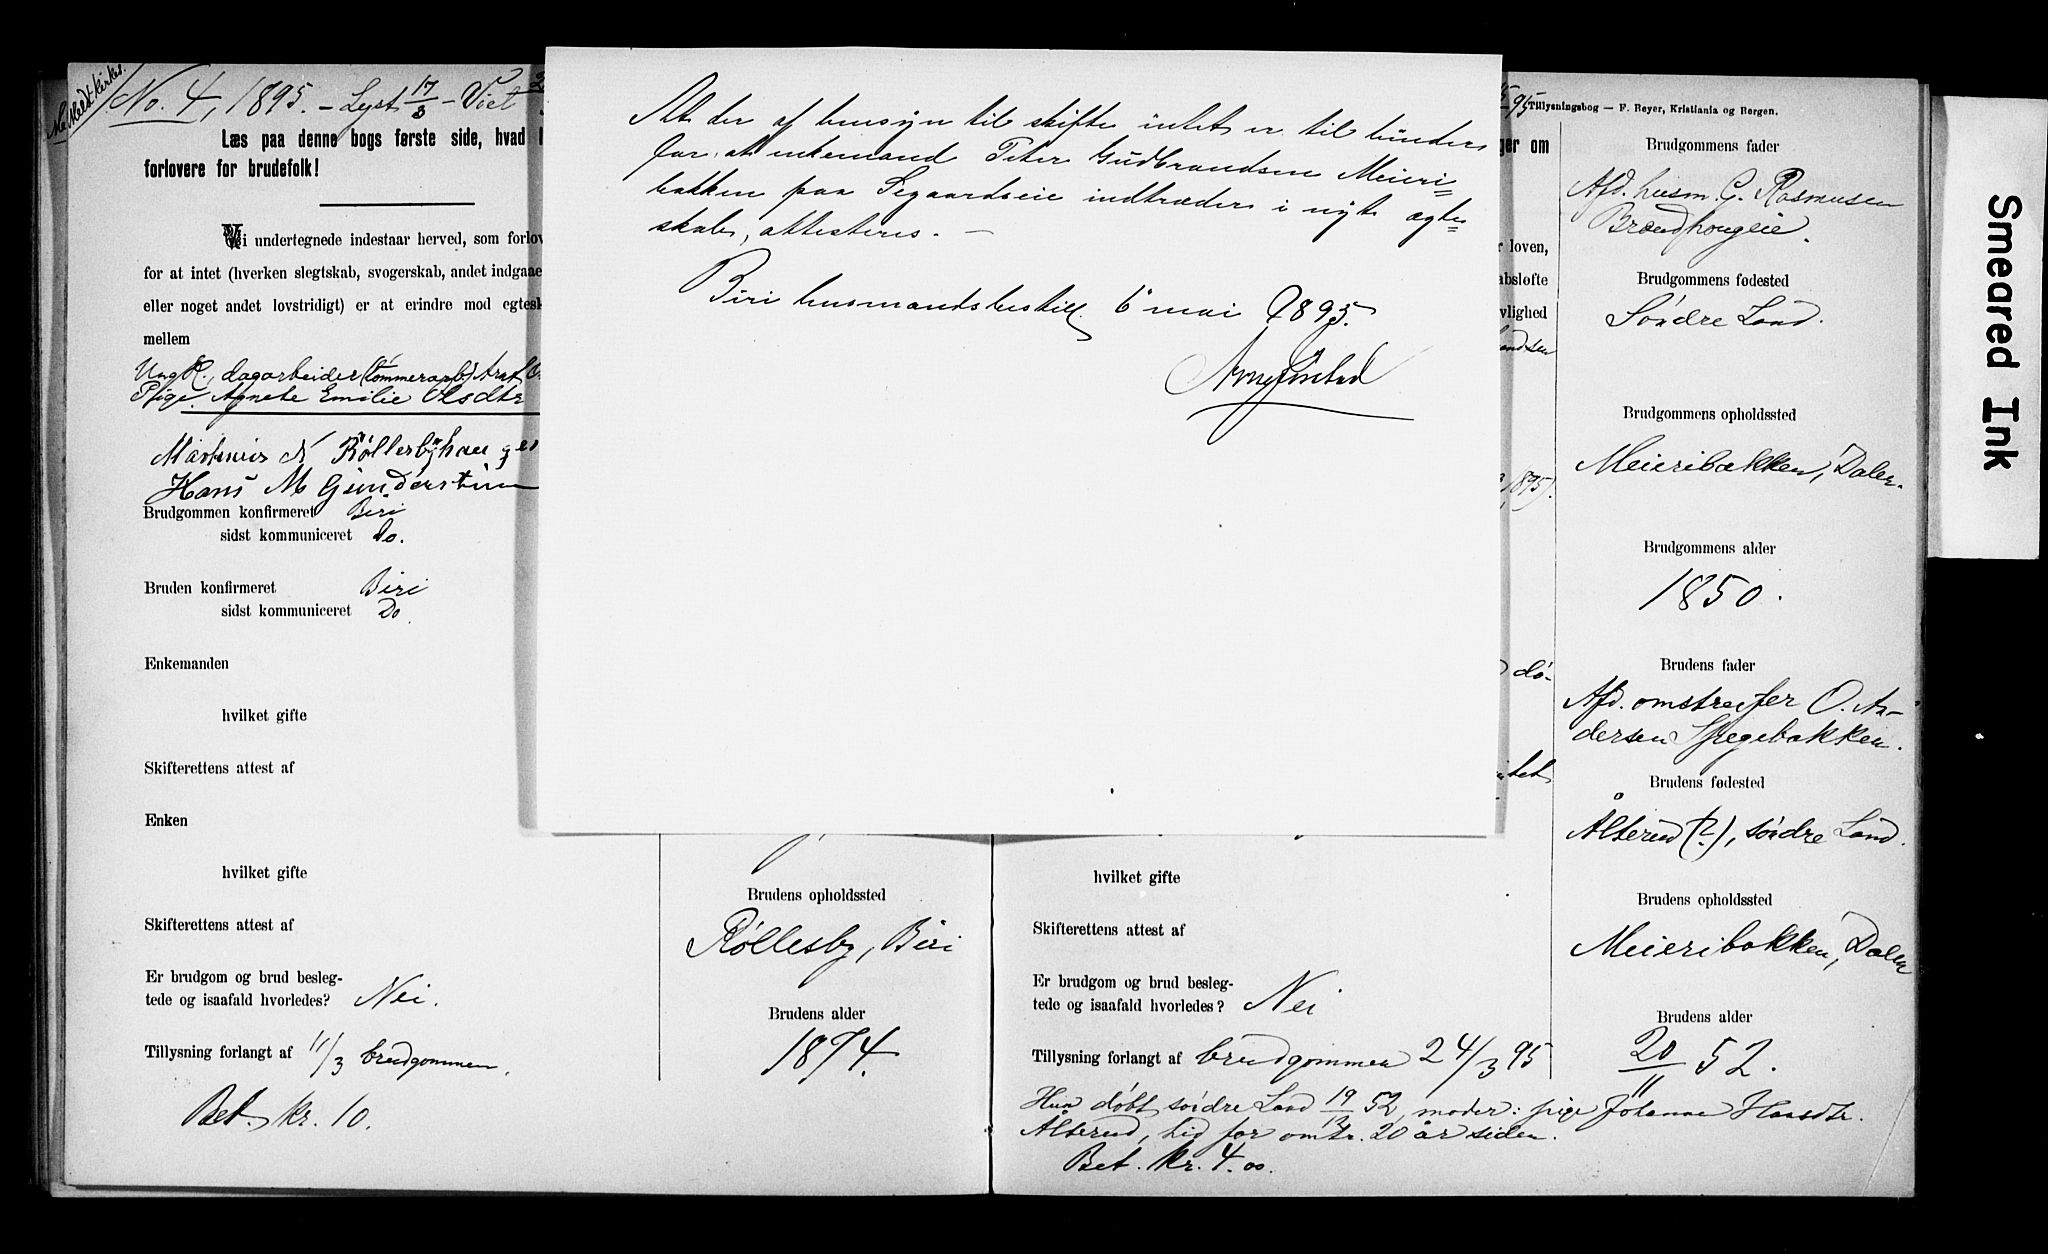 Ne Meldt kirkes.
No. 4, 1895. – Lyst 17/3 – Viet
Læs paa denne bogs første side, hvad
forlovere for brudefolk!
Vi undertegnede indestaar herved, som forlov
for at intet (hverken slegtskab, svogerskab, andet indgaae
eller noget andet lovstridigt) er at erindre mod egtesk
mellem
UngK., dagarbeider (tømmerarb.)
Pige Agnete Emilie Olsdtr
Røllesbyhaugen
Hans M
Brudgommen konfirmeret Biri
sidst kommuniceret Do.
Bruden konfirmeret Biri
sidst kommuniceret Do
Enkemanden
hvilket gifte
Skifterettens attest af
Enken
hvilket gifte
Skifterettens attest af
Er brudgom og brud besleg-
tede og isaafald hvorledes? Nei.
Tillysning forlangt af 11/3 brudgommen.
Bet. kr. 10.
Brudens opholdssted
Røllesby, Biri
Brudens alder
1874.
At der af hensyn til skifte intet er til hinder
for, at enkemand Peter Gudbrandsen Meieri=
bakken paa Segaardseie indtræder i nyt ægte=
skab, attesteres. –
Biri husmandsbestill. 6 mai 1895.
hvilket gifte
Skifterettens attest af
Er brudgom og brud besleg-
tede og isaafald hvorledes? Nei
Tillysning forlangt af brudgommen 24/3 95
Hun døbt søndre Land 19/12 52, moder: pige Johanne Hansdtr.
Ålserud, hid for omtr. 20 år siden.
Bet. kr. 4.00.
95
Tillysningsbog — F. Beyer, Kristiania og Bergen.
ger om
r loven,
absløfte
vlighed
andsen
1895).
dø-
intet
Brudgommens fader
Afd. husm. G. Rasmusen
Brændhougeie.
Brudgommens fødested
Søndre Land.
Brudgommens opholdssted
Meieribakken, Dalen.
Brudgommens alder
1850.
Brudens fader
Afd. omstreifer O. An-
dersen
Brudens fødested
Ålserud (?), søndre Land.
Brudens opholdssted
Meieribakken, Dalen
Brudens alder
20/11 52.
Smeared Ink